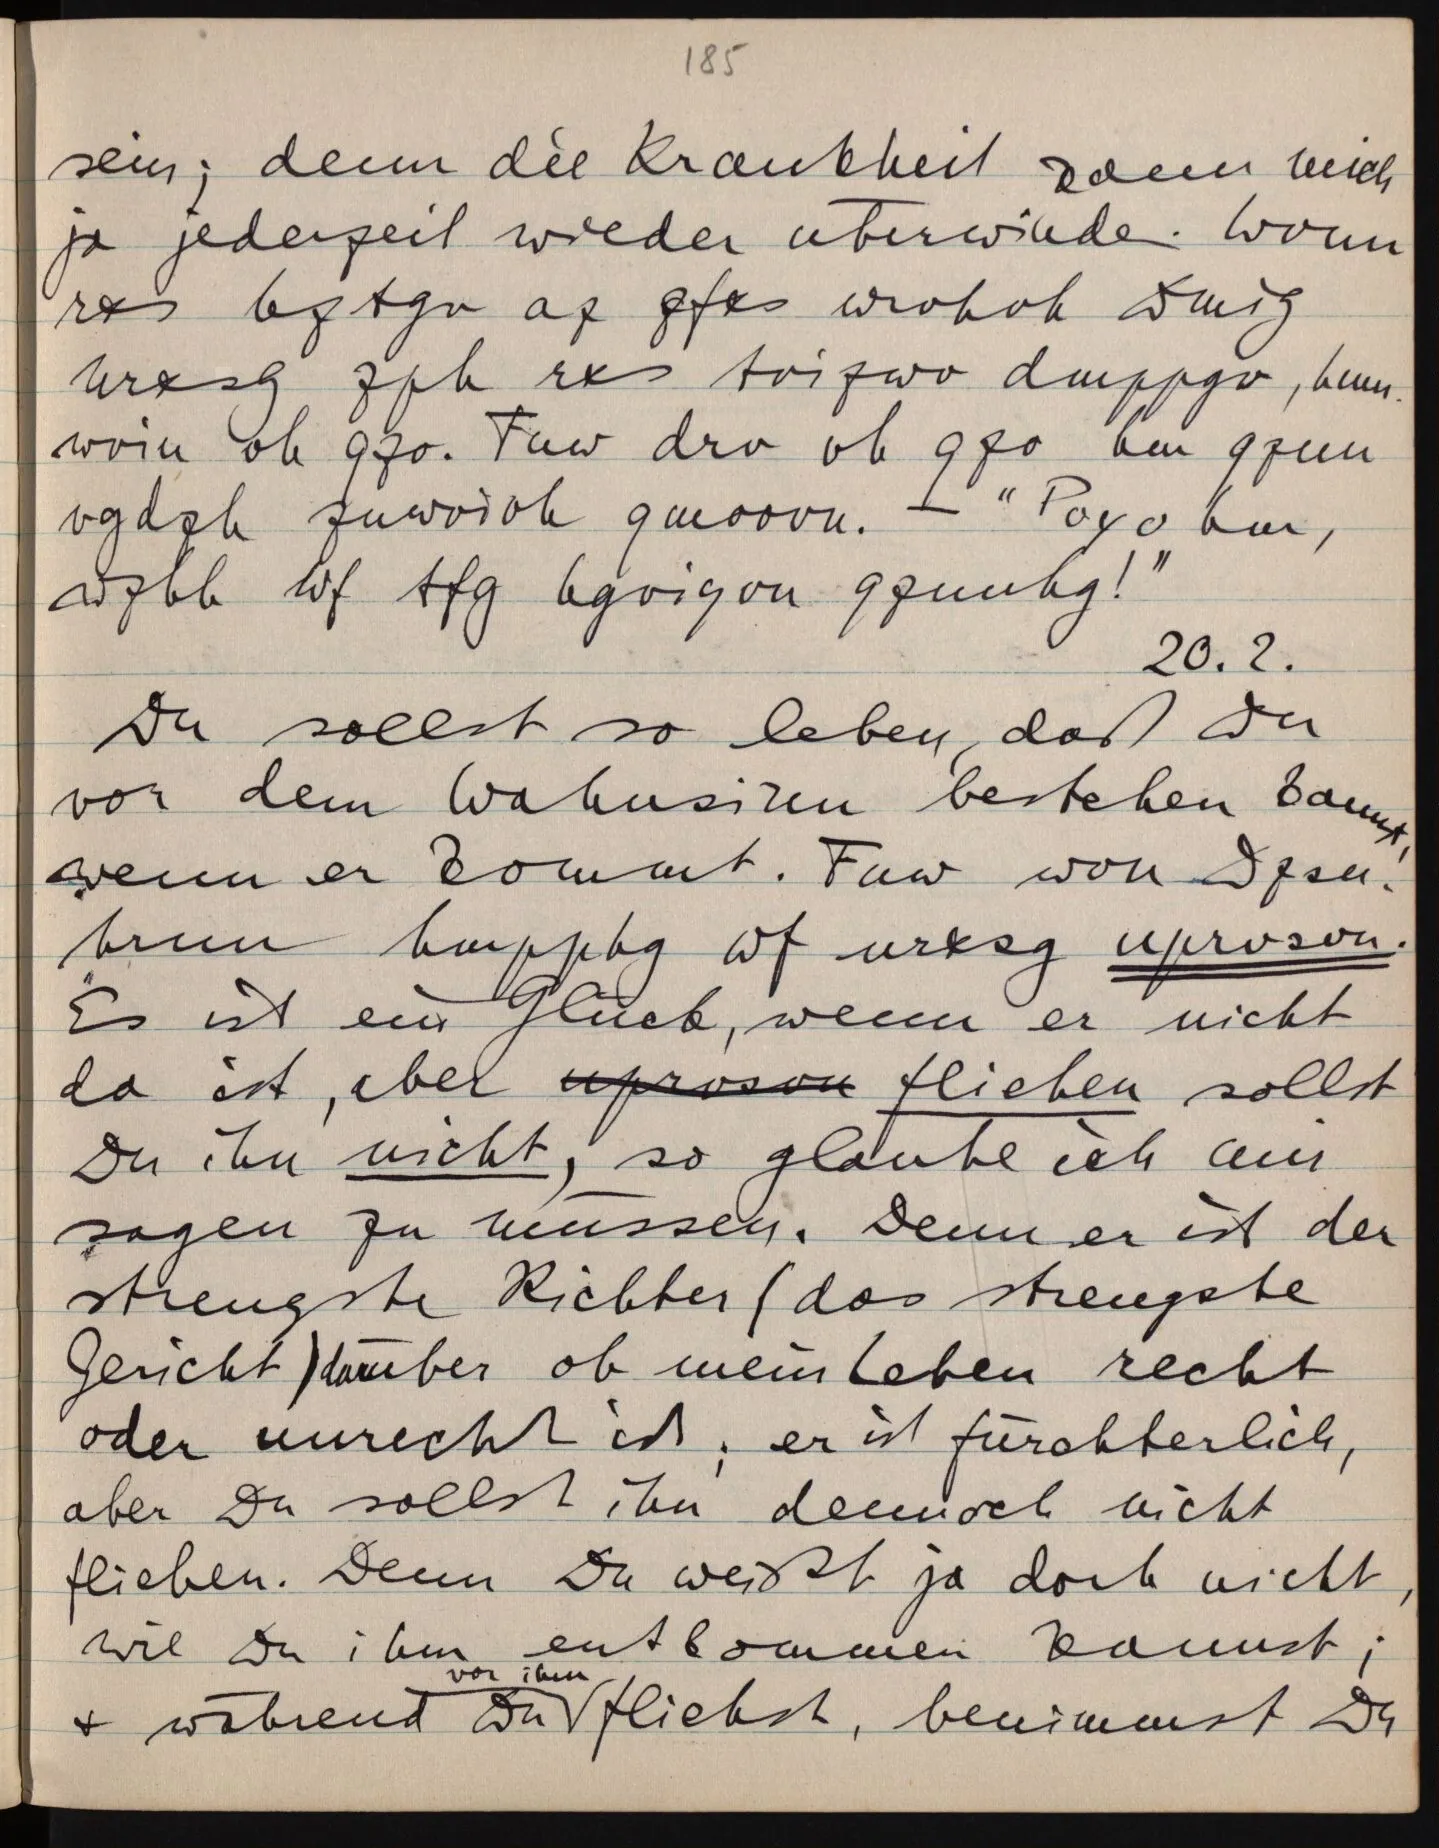 185
sein; denn die Krankheit kann mich
ja jederzeit wieder überwinden. Wvnn
rxs hztgv rz zfxs wrvhvh Dmig
nrxsg zph rxs tvizwv dmppgv, hmn-
wvin vh qzo. Fnw drv vh qzo hm qznn
vgdzh znwvivh qmoovn. – "Pvyv hm,
wzhh Wf tfg hgviyvn qznnhg!"
20.2.
Du sollst so leben, daß Du
vor dem Wahnsinn bestehen kannst,
wenn er kommt. Fnw wvn Dzsn-
hrnn hmpphg Wf nrxsg uprvsvn.
Es ist ein Glück, wenn er nicht
da ist, aber uprvsvn fliehen sollst
Du ihn nicht, so glaube ich mir
sagen zu müssen. Denn er ist der
strengste Richter (das strengste
Gericht) darüber ob mein Leben recht
oder unrecht ist; er ist fürchterlich,
aber Du sollst ihn dennoch nicht
fliehen. Denn Du weißt ja doch nicht,
wie Du ihm entkommen kannst;
vor ihm
+ während Du fliehst, benimmst Du